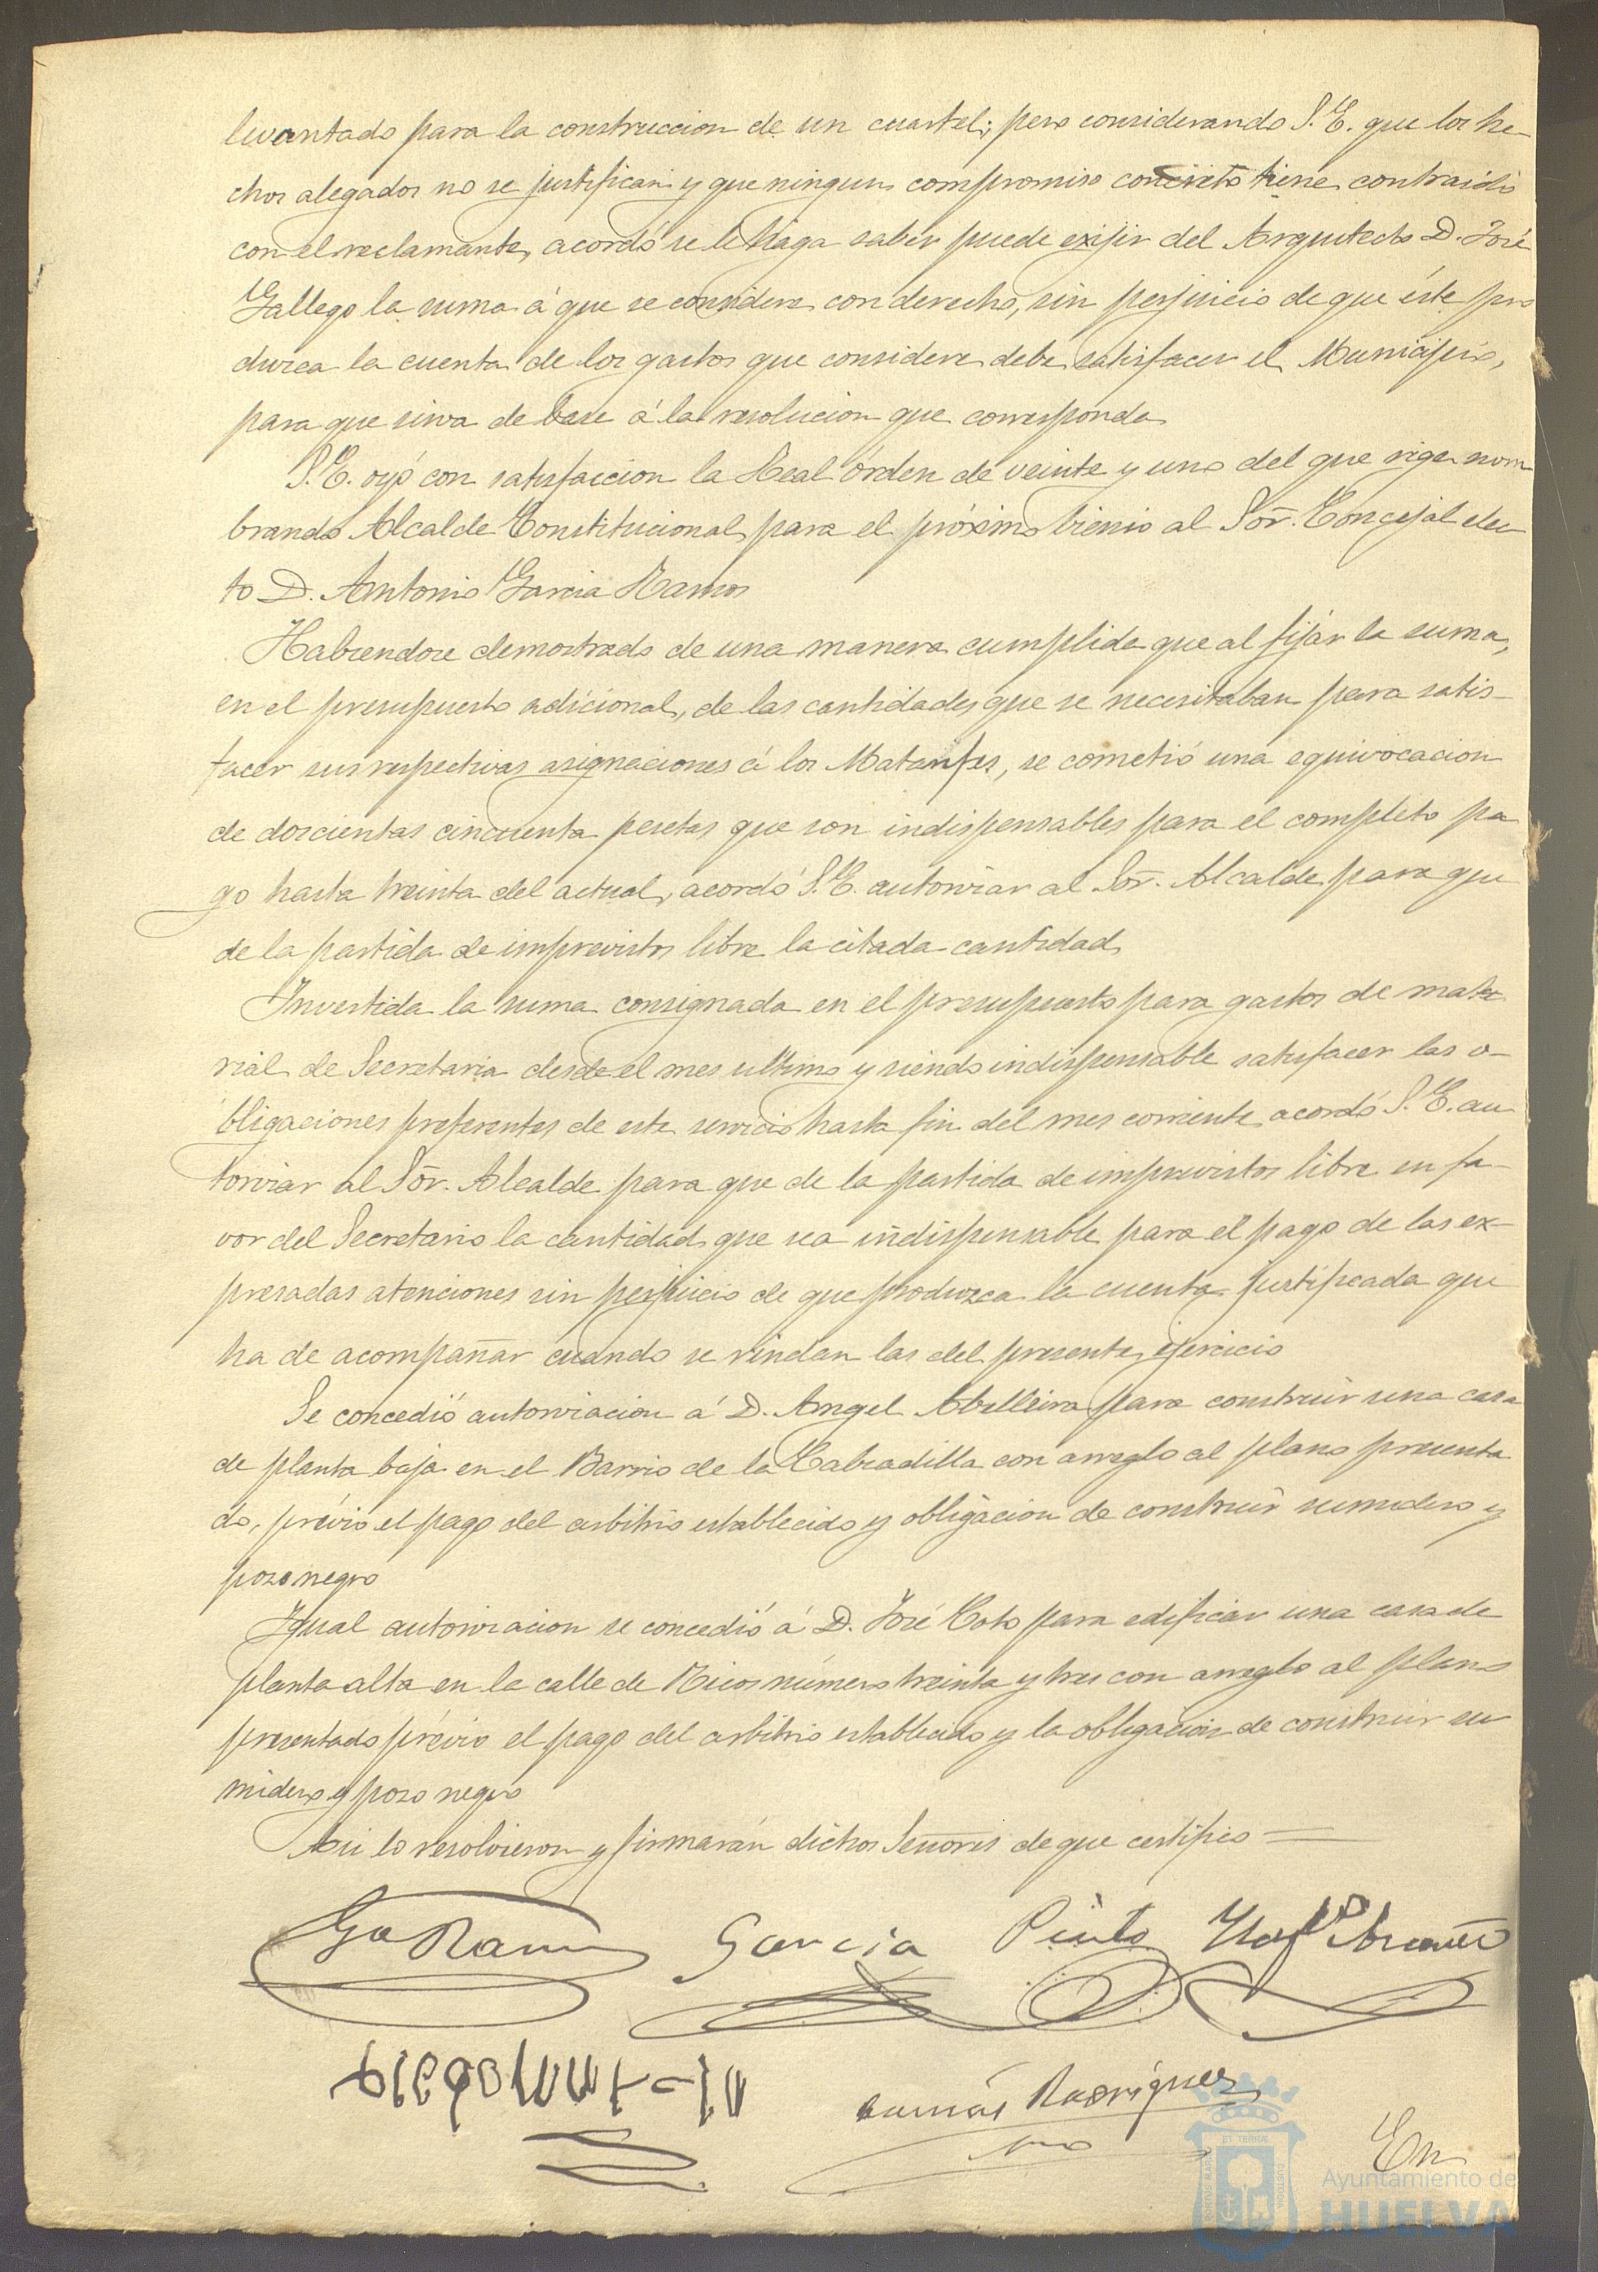 levantado para la construccion de un cuartel; pero considerando S.E. que los he-
chos alegados no se justifican y que ningun compromiso concreto tiene contraido
con el reclamante, acordó se le haga saber puede exijir del Arquitecto D. José
Gallego la suma á que se considere con derecho, sin perjuicio de que éste pro
duzca la cuenta de los gastos que considere debe satisfacer el Municipio,
para que sirva de base á la resolucion que corresponda
S.E. oyó con satisfaccion la Real órden de veinte y uno del que rige nom
brando Alcalde Constitucional para el próximo bienio al Sor. Concejal elec
to D. Antonio Garcia Ramos
Habiendose demostrado de una manera cumplida que al fijár la suma,
en el presupuesto adicional, de las cantidades que se necesitaban para satis-
facer sus respectivas asignaciones á los Matarifes, se cometió una equivocacion
de doscientas cincuenta pesetas que son indispensables para el completo pa
go hasta treinta del actual, acordó S.E. autorizar al Sor. Alcalde para que
de la partida de imprevistos libre la citada cantidad
Invertida la suma consignada en el presupuesto para gastos de mate
rial de Secretaria desde el mes ultimo y siendo indispensable satisfacer las o-
bligaciones preferentes de este servicio hasta fin del mes corriente acordó S.E. au
torizar al Sor. Alcalde para que de la partida de imprevistos libre en fa-
vor del Secretario la cantidad que sea indispensable para el pago de las ex-
presadas atenciones sin perjuicio de que produzca la cuenta justificada que
ha de acompañar cuando se rindan las del presente ejercicio
Se concedió autorizacion á D. Angel Abelleira para construir una casa
de planta baja en el Barrio de la Calzadilla con arreglo al plano presenta
do, prévio el pago del arbitrio establecido y obligacion de construir sumidero y
pozo negro
Igual autorizacion se concedió á D. José Coto para edificar una casa de
planta alta en la calle de Ricos número treinta y tres con arreglo al plano
presentado prévio el pago del arbitrio establecido y la obligacion de construir su
midero y pozo negro
Asi lo resolvieron y firmarán dichos Señores de que certifico
Ga Ramos Garcia Pinto
Rodriguez
En
Ayuntamiento de
HUELVA